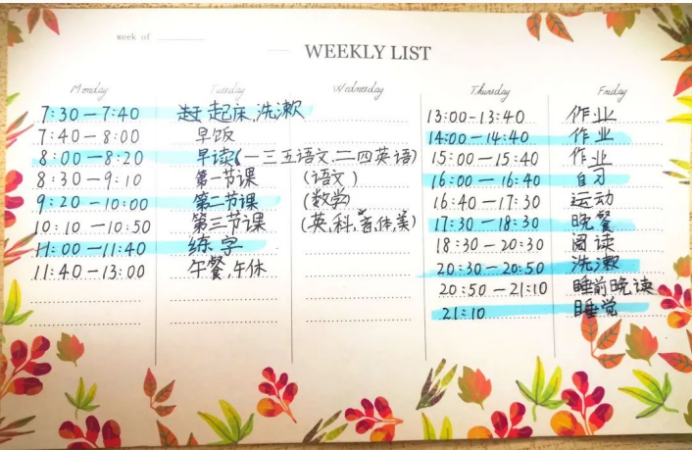 week of
WEEKLY LIST
Monday Tuesday Wednesday Thursday Friday
7:30—7:40 起床,洗漱 13:00-13:40 作业
7:40—8:00 早饭 14:00—14:40 作业
8:00—8:20 早读(一三五语文.二四英语) 15:00—15:40 作业
8:30—9:10 第一节课 (语文) 16:00—16:40 自习
9:20—10:00 第二节课 (数学) 16:40—17:30 运动
10:10—10:50 第三节课 (英,科,音,体,美) 17:30—18:30 晚餐
11:00—11:40 练字 18:30—20:30 阅读
11:40—13:00 午餐,午休 20:30—20:50 洗漱
20:50—21:10 睡前晚读
21:10 睡觉